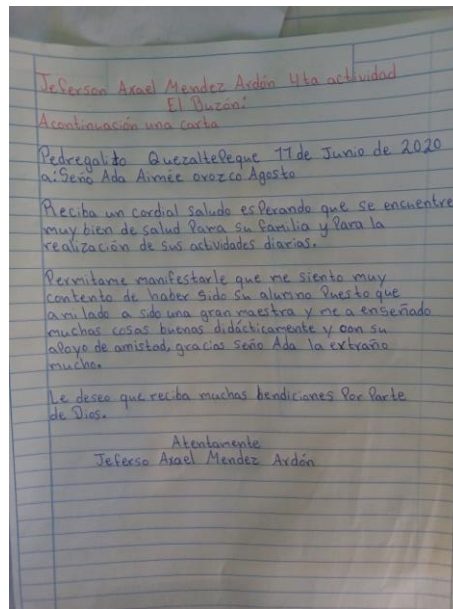 Jeferson Axael Mendez Ardón 4ta actividad
El Buzón:
Acontinuación una carta
Pedregalito Quezaltepeque 11 de Junio de 2020
a: Seño Ada Aimée orozco Agosto
Reciba un cordial saludo esperando que se encuentre
muy bien de salud Para su familia y Para la
realización de sus actividades diarias.
Permitame manifestarle que me siento muy
contento de haber sido su alumno Puesto que
a mi lado a sido una gran maestra y me a enseñado
muchas cosas buenas didácticamente y con su
apoyo de amistad, gracias seño Ada la extraño
mucho.
Le deseo que reciba muchas bendiciones Por Parte
de Dios.
Atentamente
Jeferso Axael Mendez Ardón